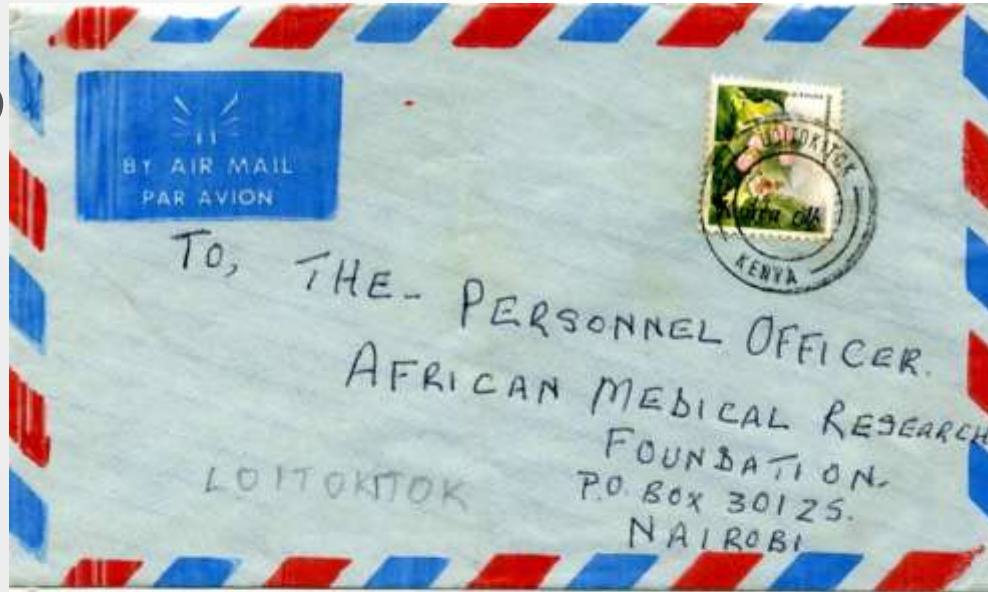 BY AIR MAIL
PAR AVION
LOITOKITOK
KENYA
TO, THE- PERSONNEL OFFICER.
AFRICAN MEDICAL RESEARCH
FOUNDATION.
P.O. BOX 30125.
NAIROBI
LOITOKITOK